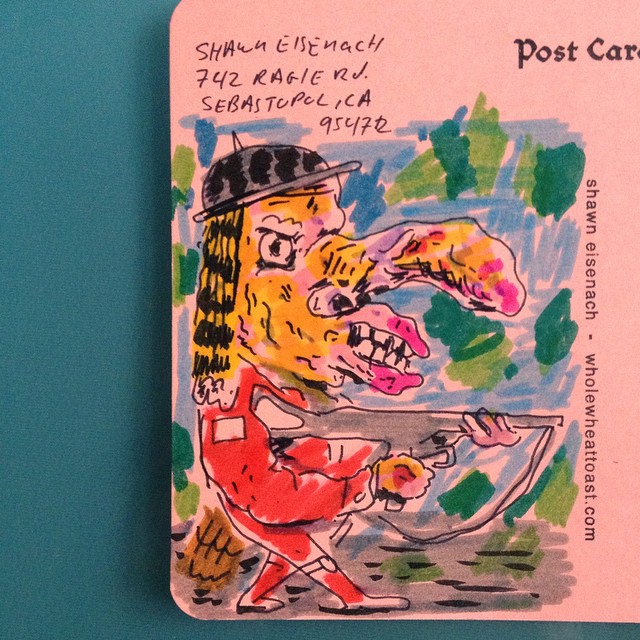 SHAWN EISENACH
742 RAGLE RD.
SEBASTOPOL, CA
95472
Post Car
shawn eisenach - wholewheattoast.com